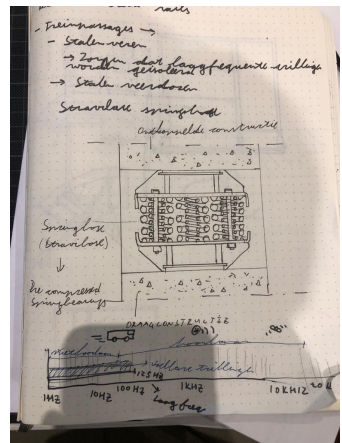 rails
- Treinpassages →
- Stalen veren
→ Zorgen dat laagfrequente trillingen
worden geïsoleerd
→ Stalen veerdozen
Stravilast springbox
Ontkoppelde constructie
Springbox
(Stravibase)
↓
Pre compressed
Springbearings
DRAAGCONSTRUCTIE
hoorbaar
voelbare trillingen
125 HZ
1HZ 10HZ 100HZ 1KHZ 10KHZ 20K
Laag freq